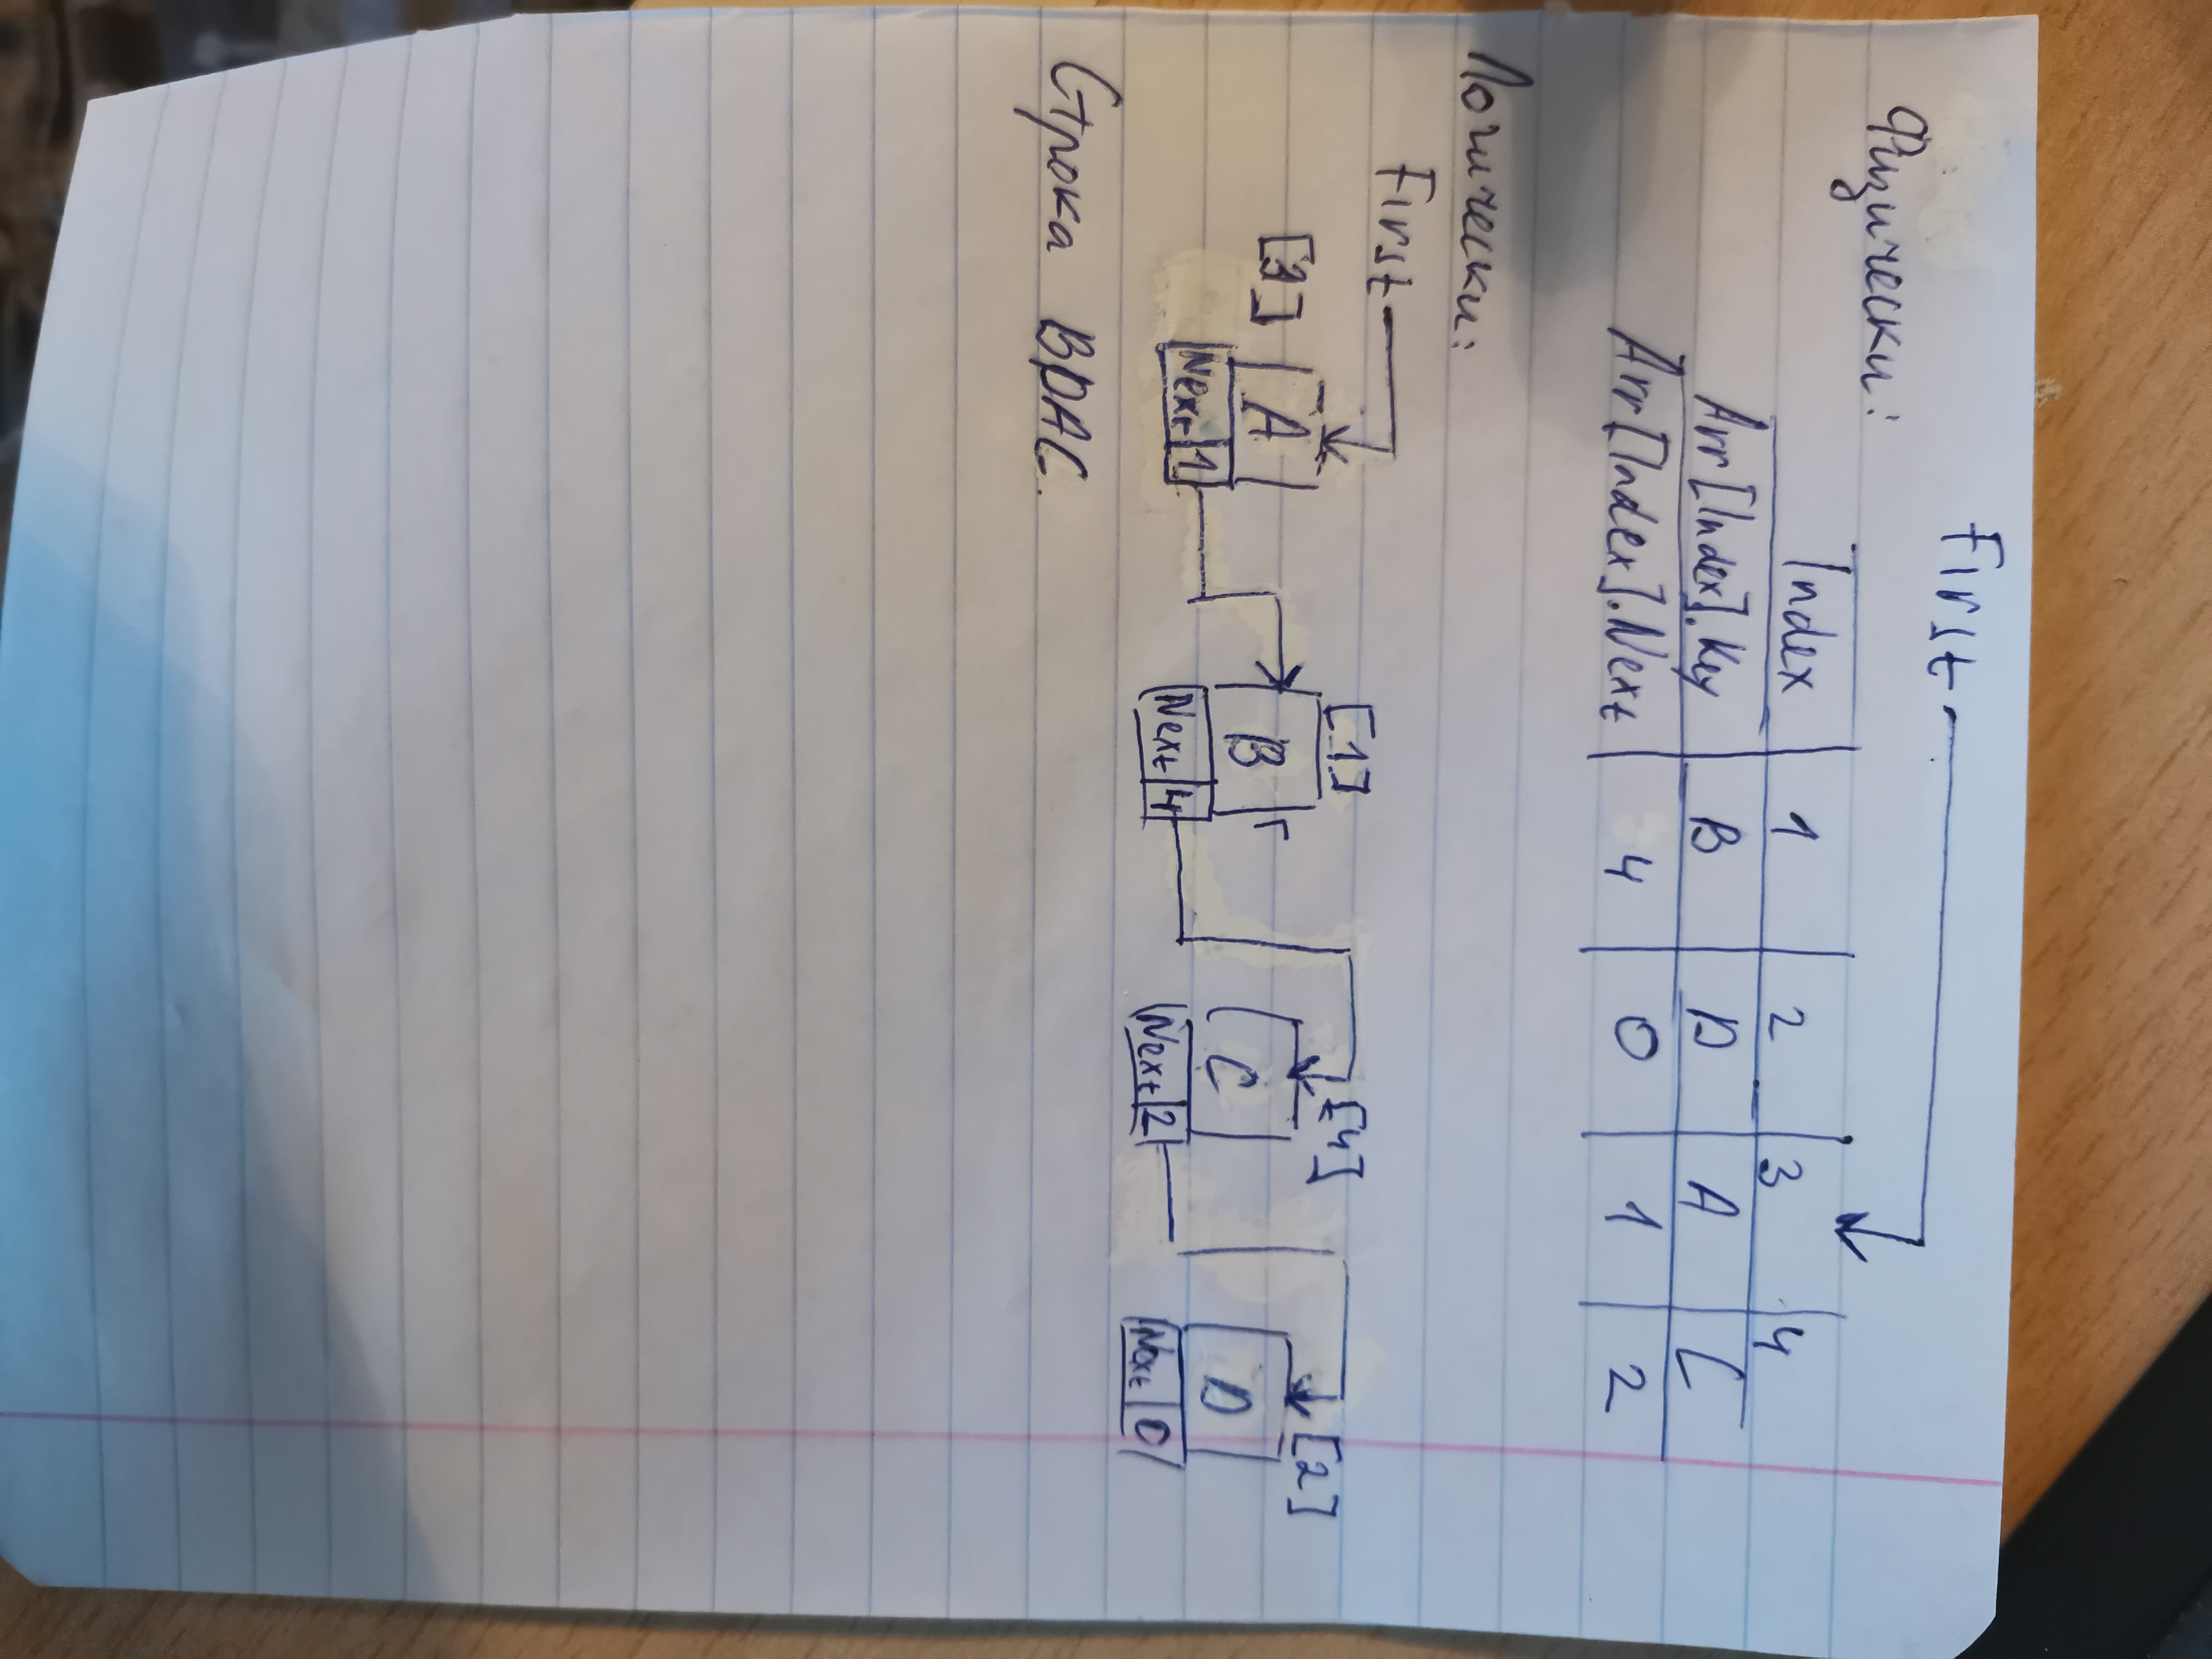 First
Физически:
Index 1 2 3 4
Arr[Index].Key B D A C
Arr[Index].Next 4 0 1 2
Логически:
First
[3] A [1] B [4] C [2] D
Next 1 Next 4 Next 2 Next 0
Строка BDAC.